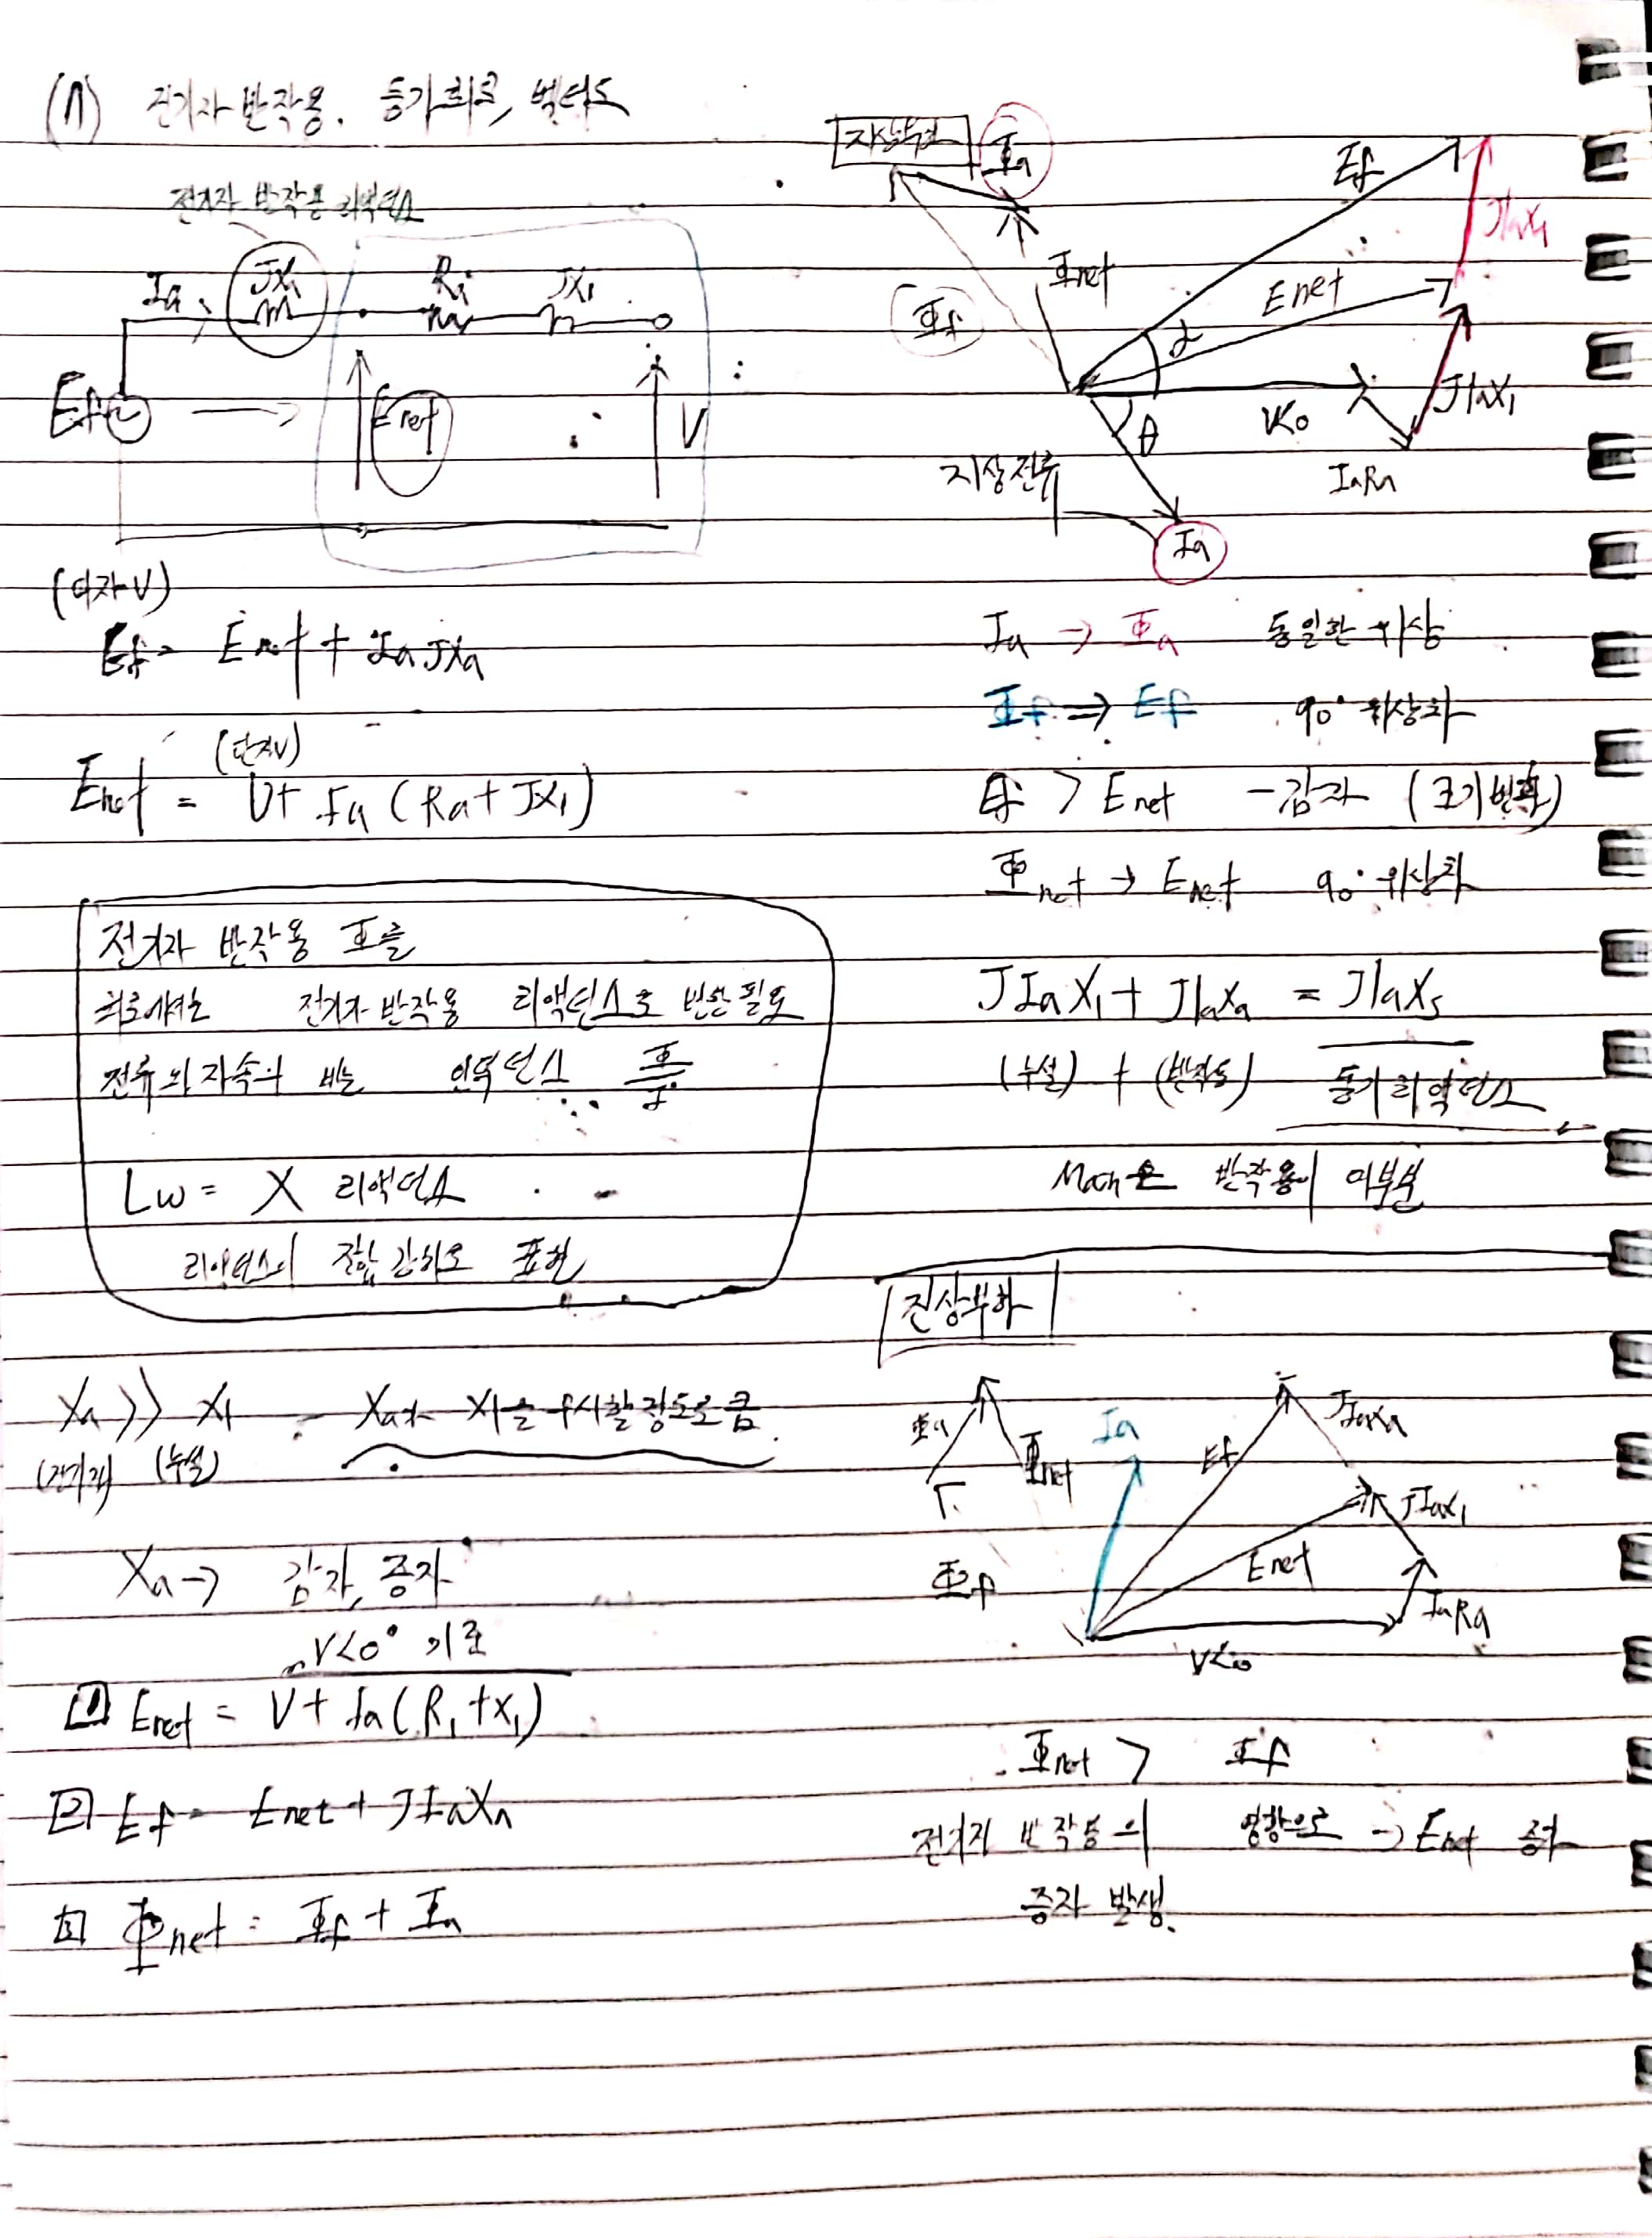 (1) 전기자 반작용. 등가회로, 벡터도
전기자 반작용 리액턴스
Ia jXa Ra jX1
Ef Enet V
(여자V)
Ef = Enet + Ia jXa
(단자V)
Enet = V + Ia (Ra + jX1)
전기자 반작용 Φ를
회로에서는 전기자 반작용 리액턴스로 변환 필요
전류와 자속의 비는 인덕턴스 Φ/I
Lω = X 리액턴스
리액턴스의 전압강하로 표현
Xa >> X1 Xa가 X1을 무시할 정도로 큼
(전기자) (누설)
Xa → 감자, 증자
V<0° 기준
1 Enet = V + Ia(R1+X1)
2 Ef = Enet + jIaXa
3 Φnet = Φf + Φa
지상부하 Φa
Ef jIaXa
Φnet Enet
Φf α
jIaX1
V<0
θ
지상전류 IaRa
Ia
Ia → Φa 동일한 위상
Φf ⇒ Ef 90° 위상차
Ef > Enet - 감자 (크기변화)
Φnet → Enet 90° 위상차
jIaX1 + jIaXa = jIaXs
(누설) + (반작용) 동기리액턴스
반작용이 대부분
진상부하
Φa Φnet Ia Ef jIaXa
jIaX1
Φf Enet
IaRa
V<0
Φnet > Φf
전기자 반작용의 영향으로 → Enet 증가
증자 발생.